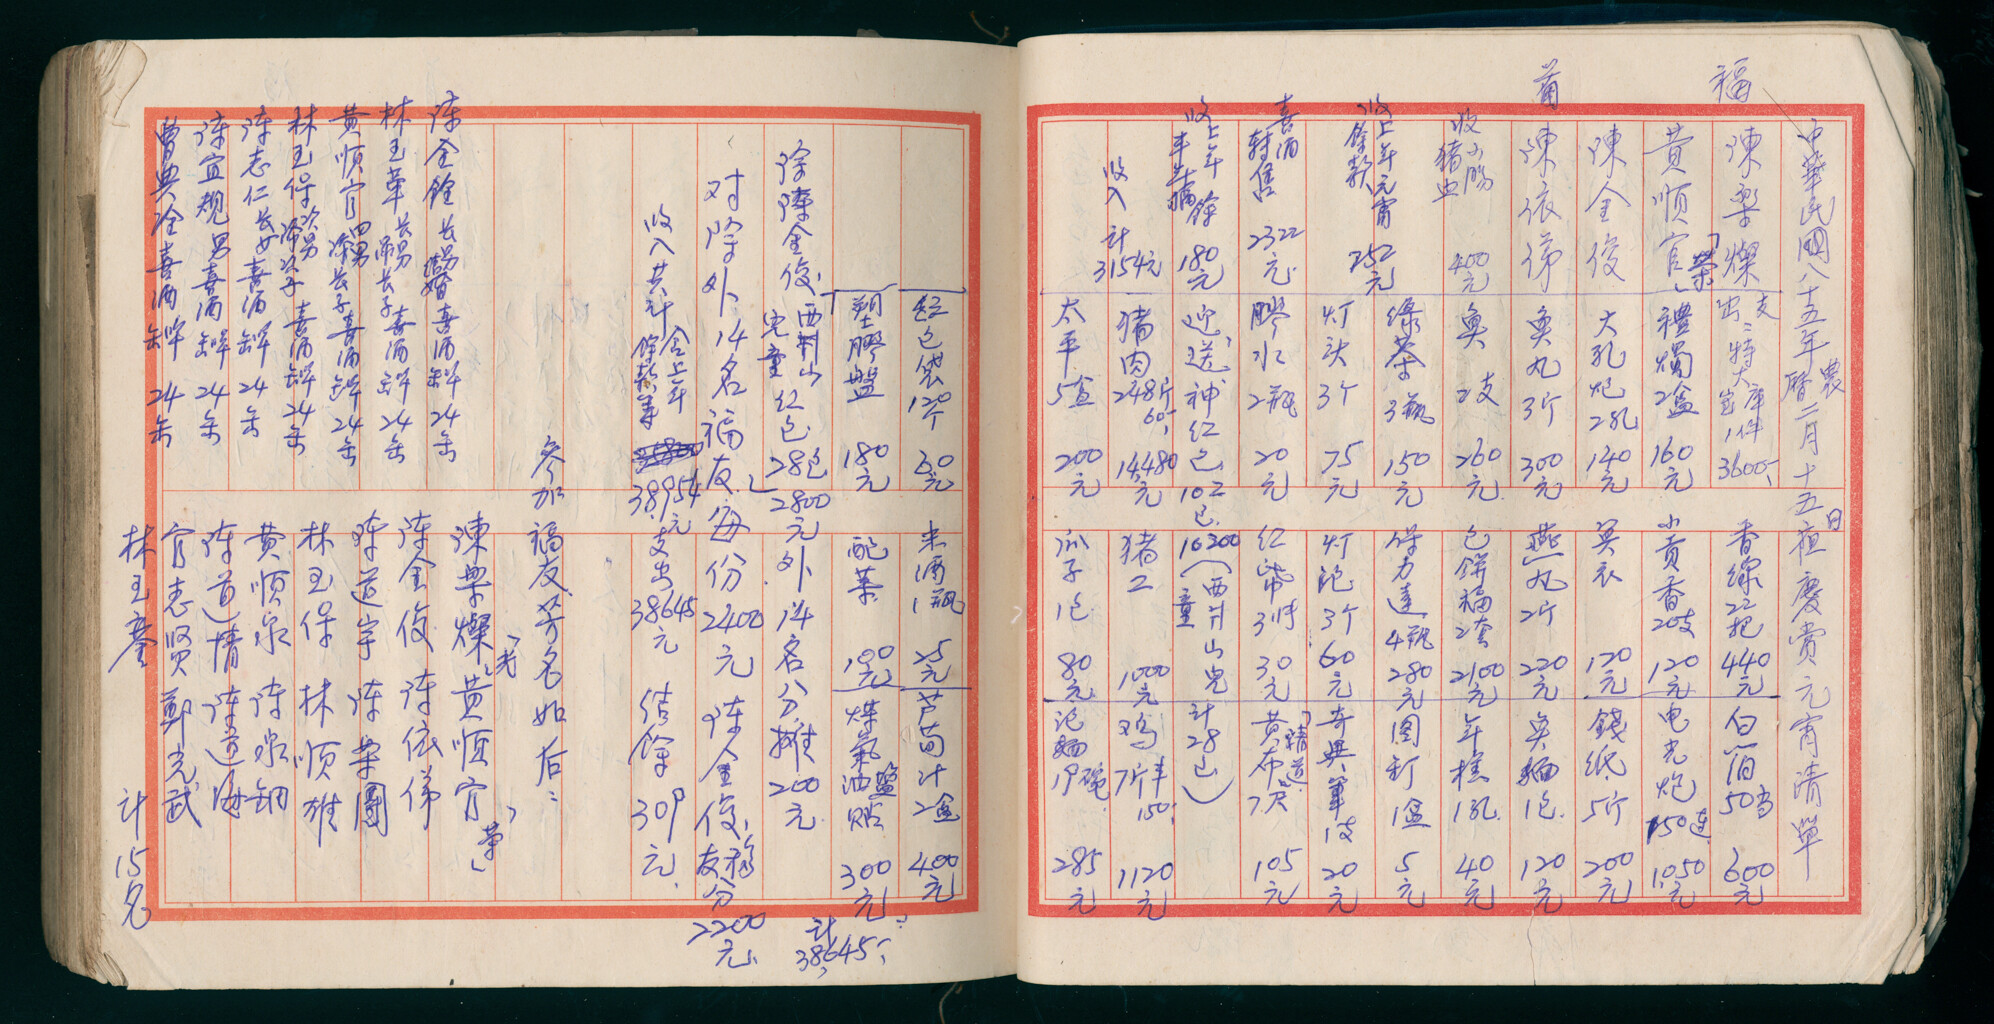 福首
中華民國八十五年農曆二月十五日夜慶賞元宵清單
陳樂燦
黃順官「榮」
陳金俊
陳依俤
收小腸猪血 400元
收上年元宵餘款 252元
喜酒轉售 2322元
收上年餘 180元
收入計 3154元
支出：特大庫宝1件 3600
禮燭2盒 160元
大孔炮2孔 140元
魚丸3斤 300元
魚2支 260元
綠茶3瓶 150元
灯头3个 75元
膠水2瓶 20元
迎送神红包
猪肉248斤 60 14,480元
太平5盒 200元
香線22把 440元
小贡香20支 120元
120元
燕丸2斤 220元
包餅福2套 2100元
保力達4瓶 280元
灯泡3个 60元
红带3时 30元
16200（西井山児童
猪工 1000元
瓜子1包 80元
白箔50 600元
电光炮150连 1,050元
錢纸5斤 200元
魚麵1包 120元
年糕1 40元
图釘1盒 5元
奇異筆1支 20元
黄布7尺「靖道」 105元
計28包）
鸡7斤半 150 1120元
泡麵19碗 285元
红包袋120个 60元
塑膠盤 180元
米酒1瓶 25元
配菜 100元
芦荀汁2盒 400元
煤氣油鹽貼 300元
計38,645
除陳金俊、西井山児童红包28包2800元外14名分攤200元
对除外14名福友每份2400元 陈金俊福友份2200元
收入共計含上年餘款等 38,954元 支出38645元 结餘309元
參加福友芳名如后：
陳樂燦「光」 黄順官「荣」
陈金俊 陈依俤
陈道宇 陈榮團
林玉保 林順雄
黄順泉 陈泉钢
陈道情 陈道海
官志贤 鄭光武
林玉奎 計15名
陈全銓 长男結婚喜酒缶啤24缶
林玉華 长男添长子喜酒缶啤24缶
黄順官 四男添长子喜酒缶啤24缶
林玉保 次男添次子喜酒缶啤24缶
陈志仁 长女喜酒缶啤24缶
陈宜規 男喜酒缶啤24缶
曹典淦 喜酒缶啤24缶